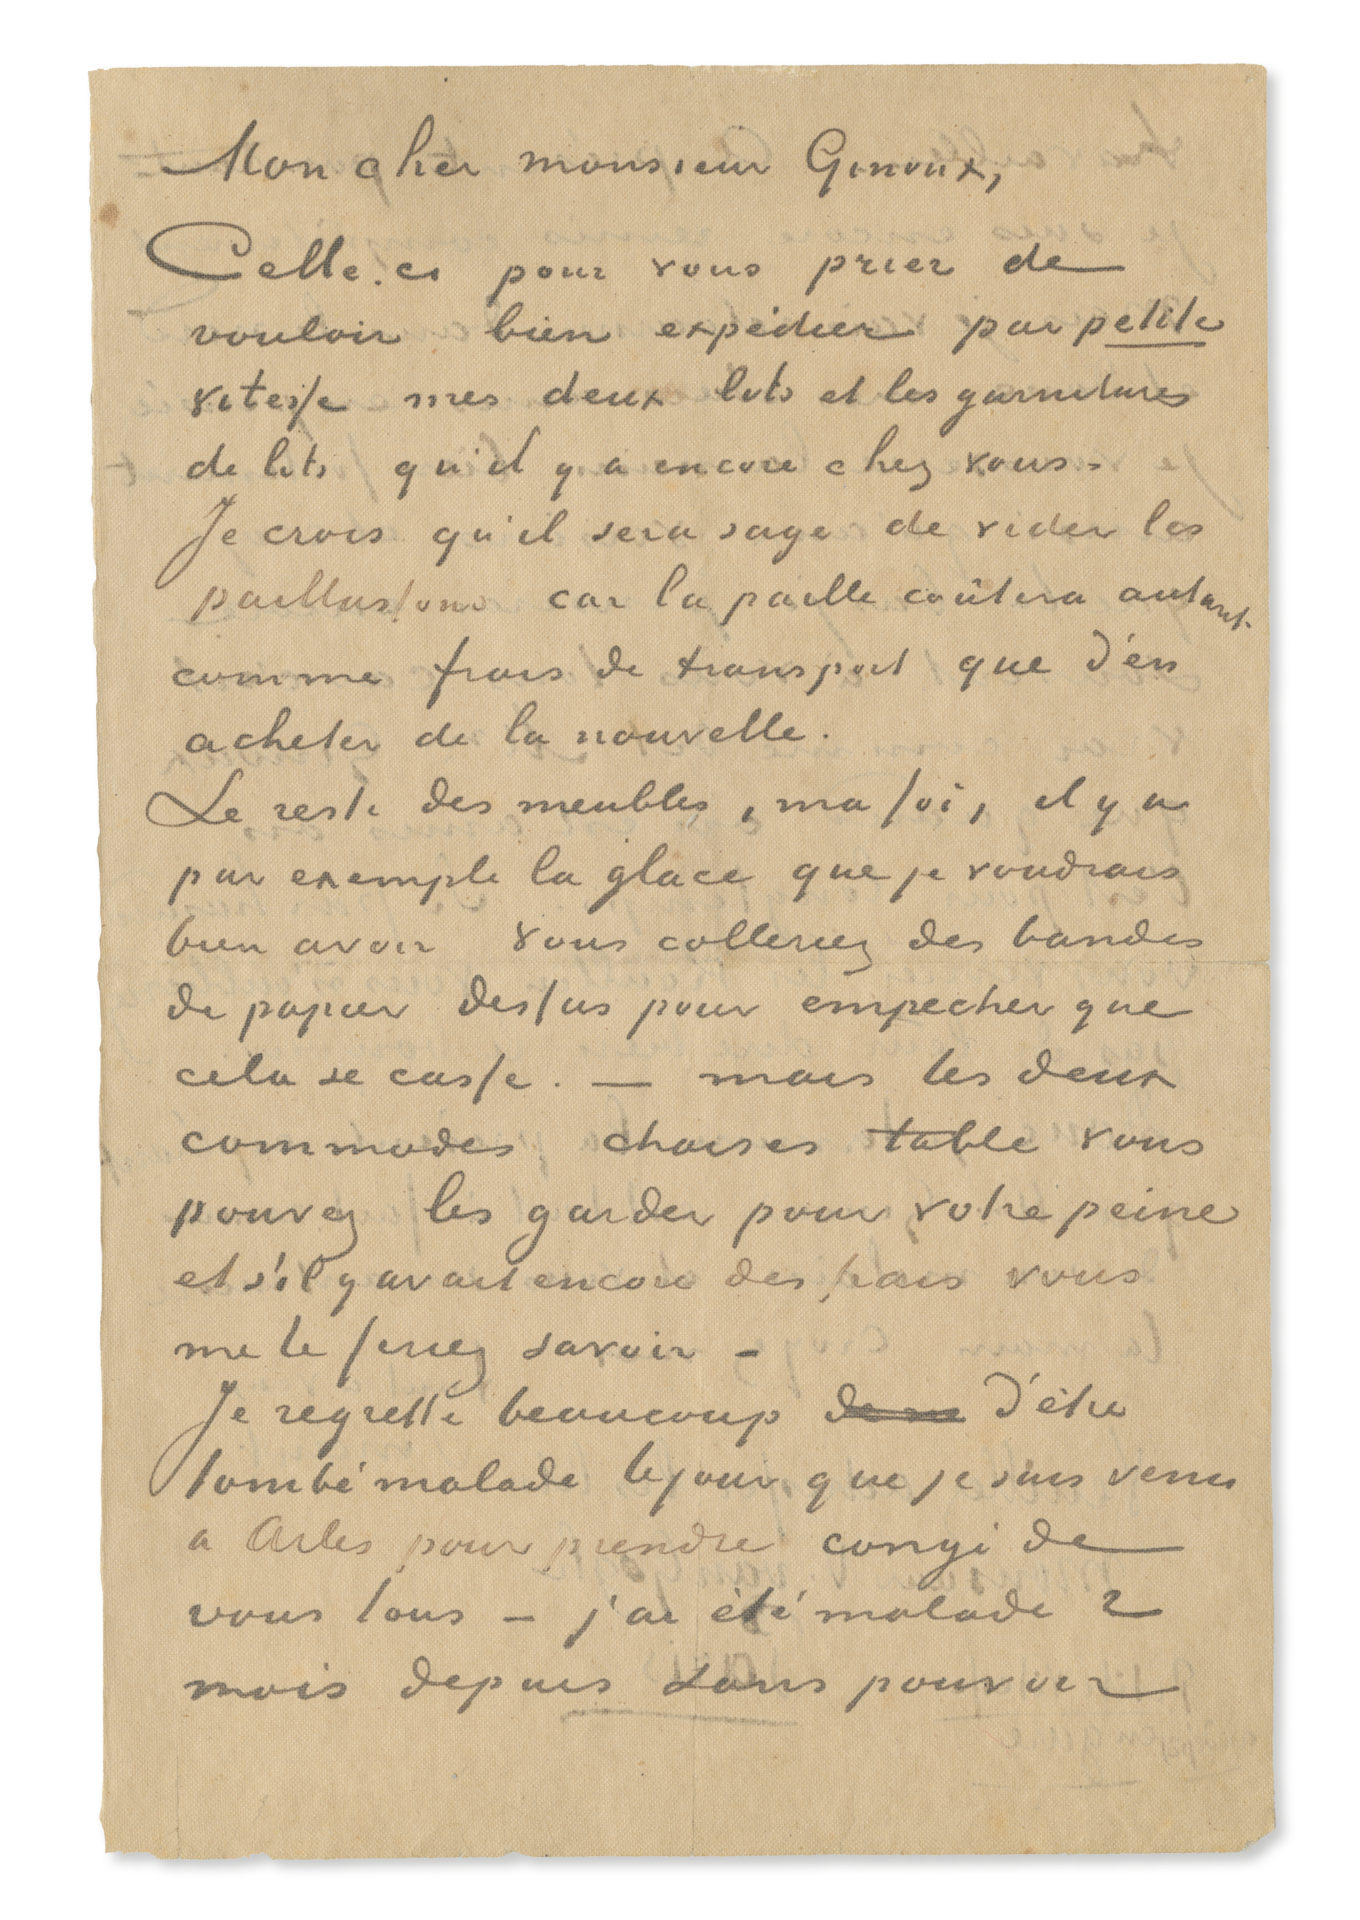 Mon cher monsieur Ginoux,
Celle-ci pour vous prier de
vouloir bien expédier par petite
vitesse mes deux lits et les garnitures
de lits qu'il y a encore chez vous.
Je crois qu'il sera sage de vider les
paillassons car la paille coûtera autant
comme frais de transport que d'en
acheter de la nouvelle.
Le reste des meubles, ma foi, il y a
par exemple la glace que je voudrais
bien avoir vous colleriez des bandes
de papier dessus pour empecher que
cela se casse. — mais les deux
commodes chaises table vous
pouvez les garder pour votre peine
et s'il y avait encore des frais vous
me le feriez savoir –
Je regrette beaucoup de ne d'être
tombé malade le jour que je suis venu
a Arles pour prendre congé de
vous tous – j'ai été malade 2
mois depuis sans pouvoir